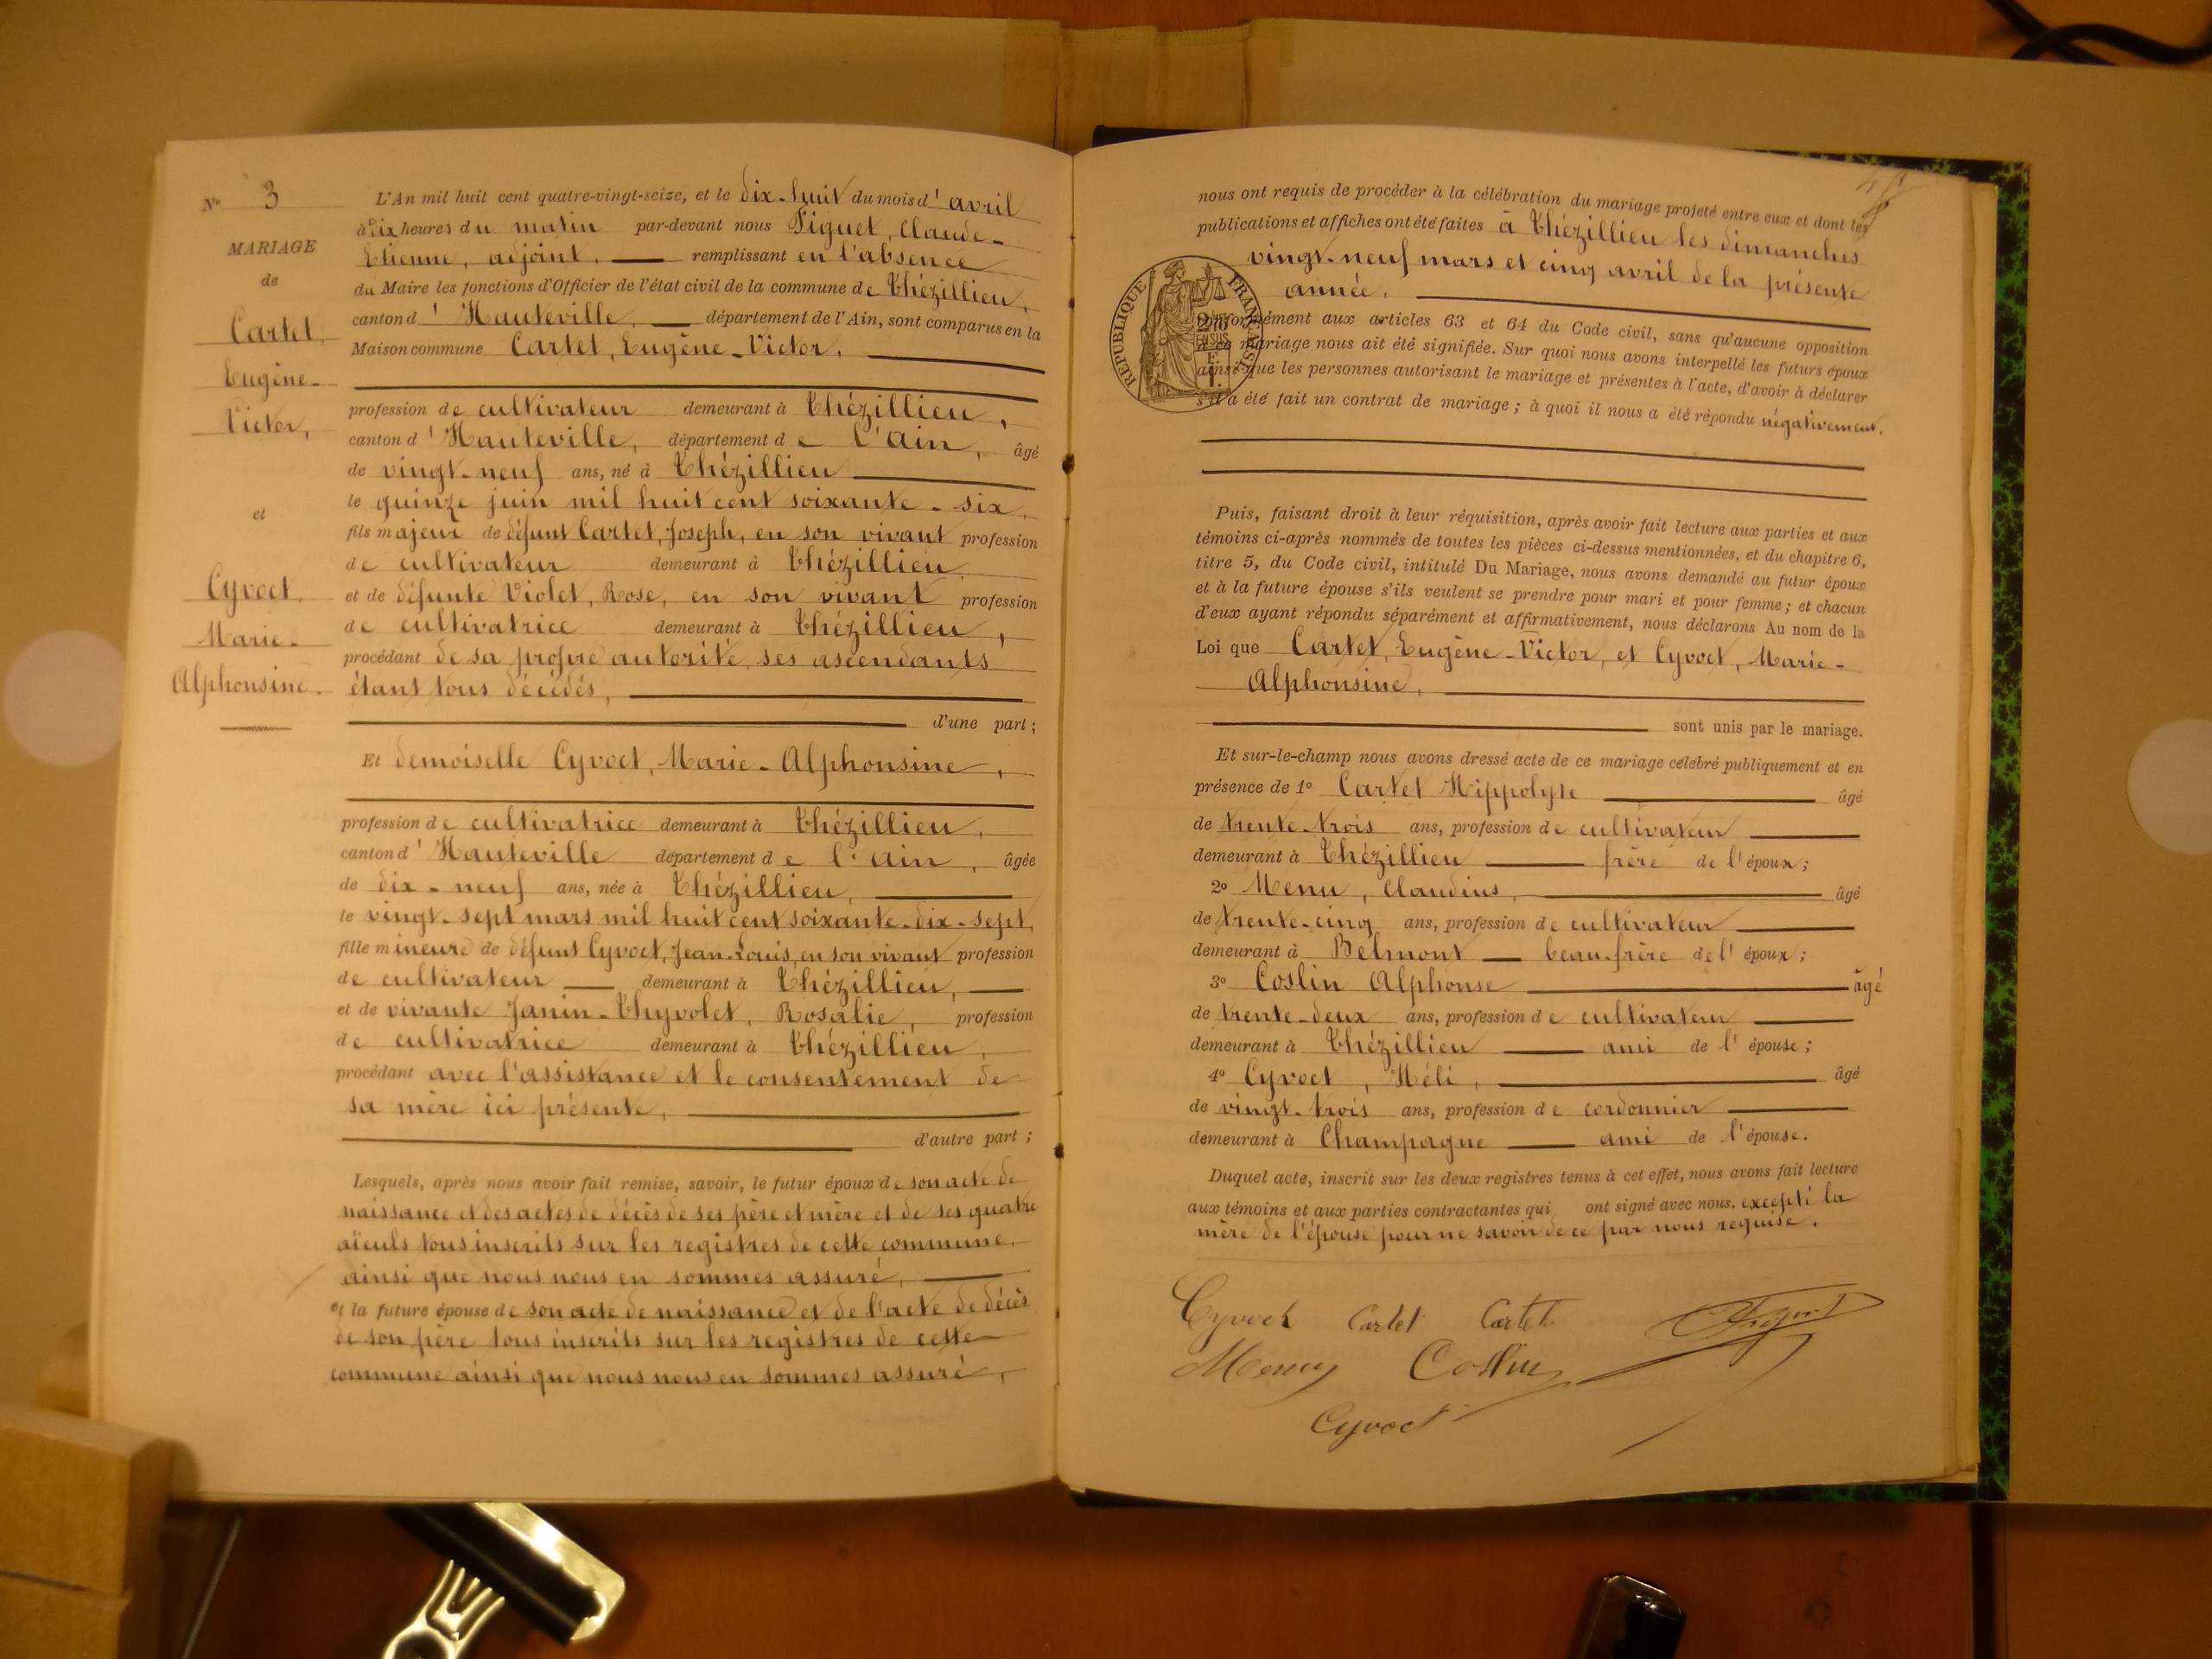 Nº 3
MARIAGE
de
Cartet,
Eugène-
Victor,
et
Cyvoct,
Marie-
Alphonsine.
L'An mil huit cent quatre-vingt-seize, et le dix-huit du mois d'avril
à dix heures du matin par-devant nous Piguet, Claude-
Etienne, adjoint, remplissant en l'absence
du Maire les fonctions d'Officier de l'état civil de la commune de Thézillieu,
canton d'Hauteville, département de l'Ain, sont comparus en la
Maison commune Cartet, Eugène-Victor,
profession de cultivateur demeurant à Thézillieu,
canton d'Hauteville, département de l'Ain, âgé
de vingt-neuf ans, né à Thézillieu
le quinze juin mil huit cent soixante-six,
fils majeur de défunt Cartet, Joseph, en son vivant profession
de cultivateur demeurant à Thézillieu,
et de défunte Violet, Rose, en son vivant profession
de cultivatrice demeurant à Thézillieu,
procédant de sa propre autorité, ses ascendants
étant tous décédés,
d'une part;
Et demoiselle Cyvoct, Marie-Alphonsine,
profession de cultivatrice demeurant à Thézillieu,
canton d'Hauteville département de l'Ain, âgée
de dix-neuf ans, née à Thézillieu,
le vingt-sept mars mil huit cent soixante-dix-sept,
fille mineure de défunt Cyvoct, Jean-Louis, en son vivant profession
de cultivateur demeurant à Thézillieu,
et de vivante Janin-Thyvolet, Rosalie, profession
de cultivatrice demeurant à Thézillieu,
procédant avec l'assistance et le consentement de
sa mère ici présente,
d'autre part;
Lesquels, après nous avoir fait remise, savoir, le futur époux de son acte de
naissance et des actes de décès de ses père et mère et de ses quatre
aïeuls tous inscrits sur les registres de cette commune,
ainsi que nous nous en sommes assuré,
et la future épouse de son acte de naissance et de l'acte de décès
de son père tous inscrits sur les registres de cette
commune ainsi que nous nous en sommes assuré,
nous ont requis de procéder à la célébration du mariage projeté entre eux et dont les
publications et affiches ont été faites à Thézillieu les dimanches
vingt-neuf mars et cinq avril de la présente
année,
RÉPUBLIQUE FRANÇAISE
conformément aux articles 63 et 64 du Code civil, sans qu'aucune opposition
mariage nous ait été signifiée. Sur quoi nous avons interpellé les futurs époux
ainsi que les personnes autorisant le mariage et présentes à l'acte, d'avoir à déclarer
s'il a été fait un contrat de mariage; à quoi il nous a été répondu négativement.
Puis, faisant droit à leur réquisition, après avoir fait lecture aux parties et aux
témoins ci-après nommés de toutes les pièces ci-dessus mentionnées, et du chapitre 6,
titre 5, du Code civil, intitulé Du Mariage, nous avons demandé au futur époux
et à la future épouse s'ils veulent se prendre pour mari et pour femme; et chacun
d'eux ayant répondu séparément et affirmativement, nous déclarons Au nom de la
Loi que Cartet, Eugène-Victor, et Cyvoct, Marie-
Alphonsine,
sont unis par le mariage.
Et sur-le-champ nous avons dressé acte de ce mariage célébré publiquement et en
présence de 1º Cartet Hippolyte âgé
de trente-trois ans, profession de cultivateur
demeurant à Thézillieu frère de l'époux;
2º Menu, Claudius, âgé
de trente-cinq ans, profession de cultivateur
demeurant à Belmont beau-frère de l'époux;
3º Coslin Alphonse âgé
de trente-deux ans, profession de cultivateur
demeurant à Thézillieu ami de l'épouse;
4º Cyvoct, Héli, âgé
de vingt-trois ans, profession de cordonnier
demeurant à Champagne ami de l'épouse.
Duquel acte, inscrit sur les deux registres tenus à cet effet, nous avons fait lecture
aux témoins et aux parties contractantes qui ont signé avec nous, excepté la
mère de l'épouse pour ne savoir de ce par nous requise.
Cyvoct Cartet Cartet Piguet
Menu Collin
Cyvoct